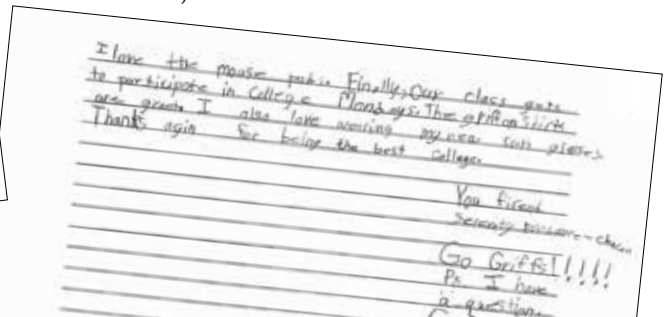 I love the mouse pads. Finally, Our class gets
to participate in College Mondays. The griffon shirts
are great. I also love wearing my new sun glasses
Thanks agin for being the best college.
You firend
Serenity
Go Griffs!!!!!
Ps. I have
a question.